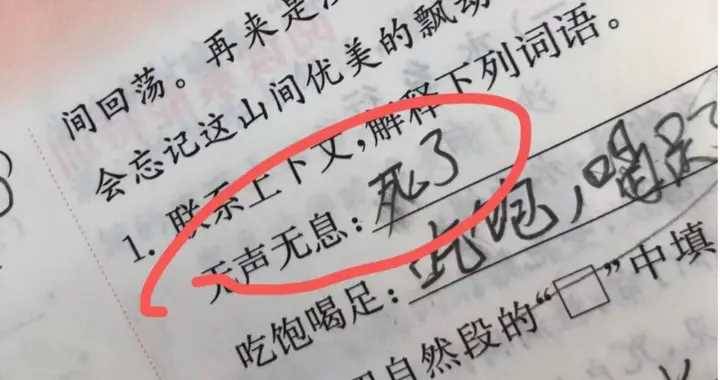 间回荡。再来是
会忘记这山间优美的飘动
1. 联系上下文,解释下列词语。
无声无息:死了
吃饱喝足:吃饱,喝足了
自然段的“□”中填